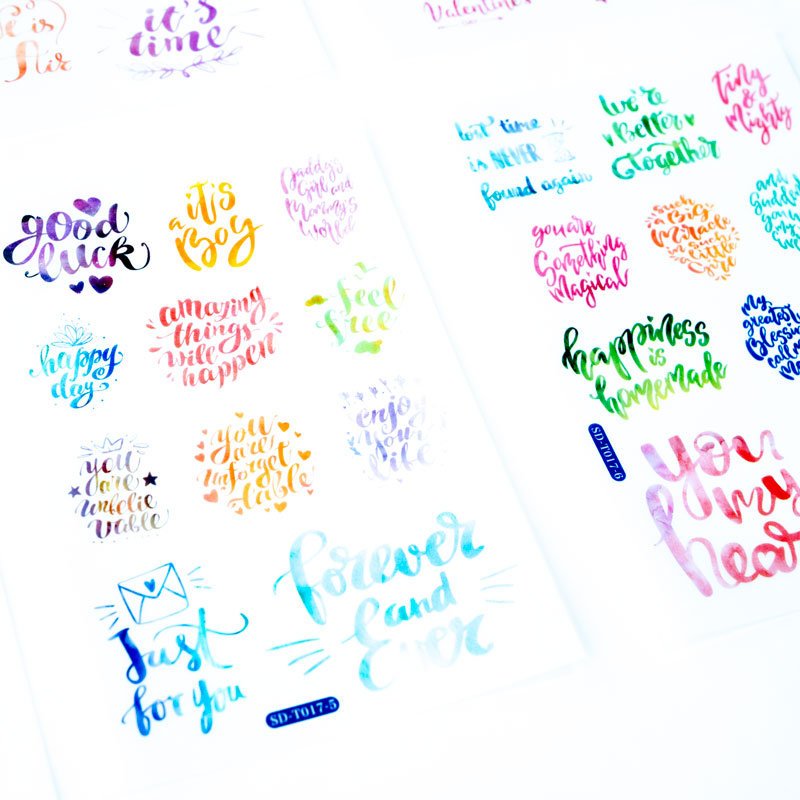 is
Air
it's
time
Valentine's
DAY
good
luck
it's
a
Boy
Daddy's
Girl and
Mommy's
World
happy
day
amazing
things
will
happen
feel
free
you
are
unbelie
vable
you
are
unforget
table
enjoy
your
life
Just
for you
forever
and
Ever
SD-T017-5
lost time
is NEVER
found again
we're
Better
together
tiny
&
Mighty
you are
Something
Magical
such
a Big
Miracle
in such
a little
and
you
my
happiness
is
homemade
my
greatest
Blessing
call me
SD-T017-6
you
my